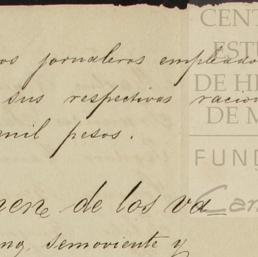 os jornaleros empleado
sus respectivas racion
mil pesos.
de los va=
semoviente y
CENT
ESTU
DE H
DE M
FUND
Car